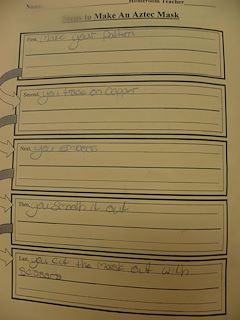 Name: Homeroom Teacher
Steps to Make An Aztec Mask
First, Make your pattern
Second, you trace on copper
Next, you emboss
Then, you smooth it out
Last, you cut the mask out with